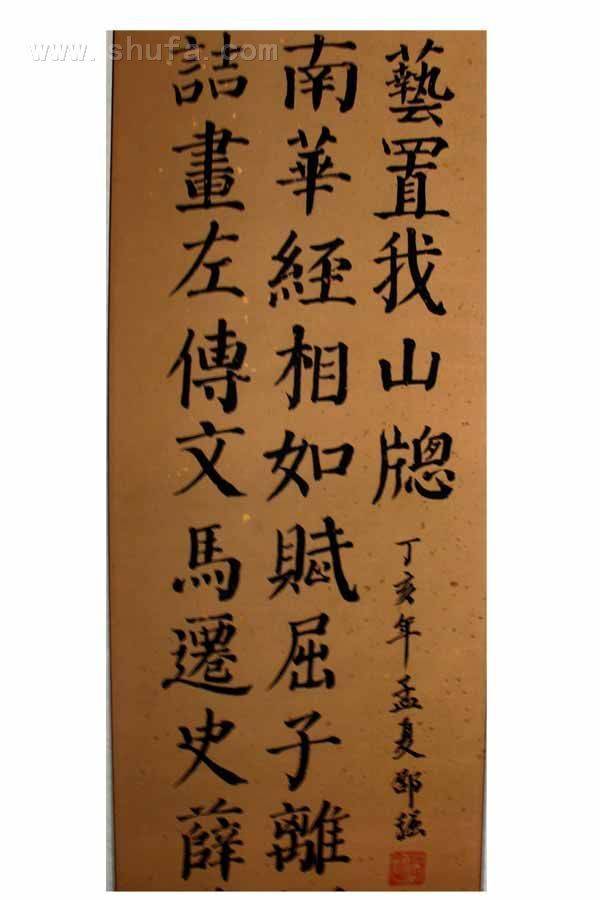 www.shufa.com
詰畫左傳文馬遷史薛
南華經相如賦屈子離
藝置我山牕
丁亥年孟夏